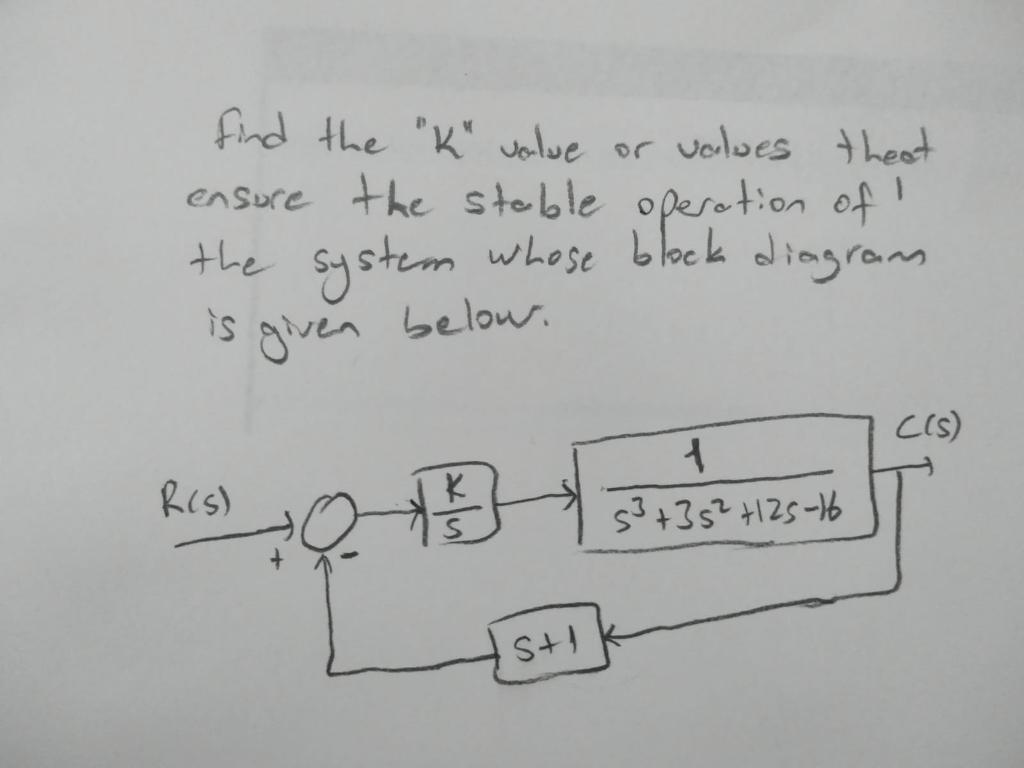 find the "K" value or values theat
ensure the stable operation of
the system whose block diagram
is given below.
R(s)
+
-
K
s
1
s³+3s²+12s-16
C(s)
s+1